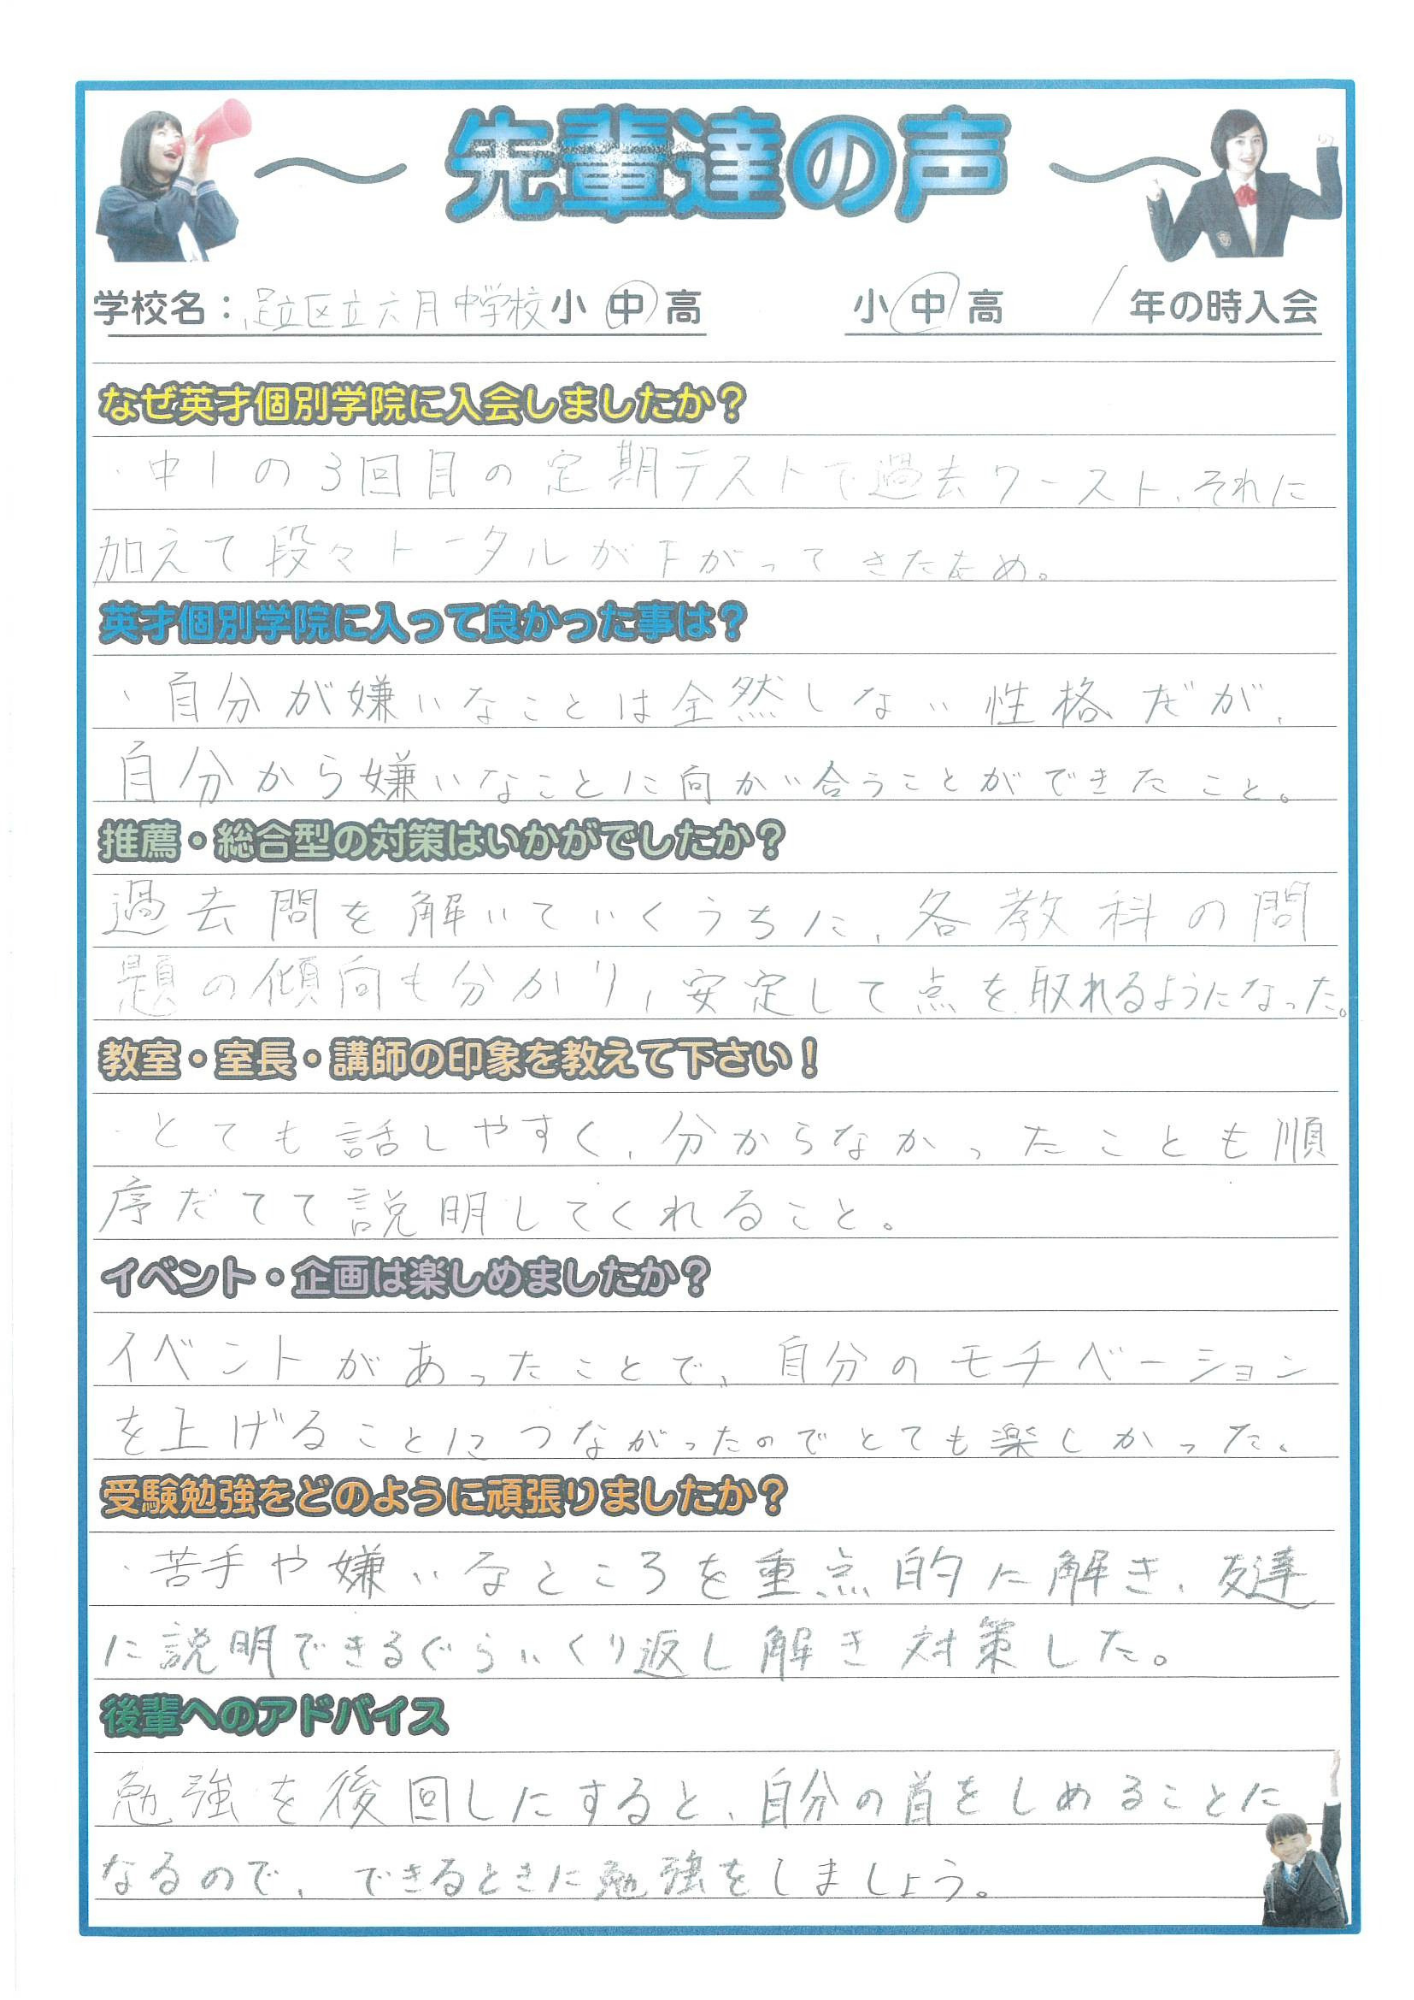 ～ 先輩達の声 ～
学校名：足立区立六月中学校 小 中 高 小 中 高 1 年の時入会
なぜ英才個別学院に入会しましたか？
・中1の3回目の定期テストで過去ワースト、それに
加えて段々トータルが下がってきたため。
英才個別学院に入って良かった事は？
・自分が嫌いなことは全然しない性格だが、
自分から嫌いなことに向かい合うことができたこと。
推薦・総合型の対策はいかがでしたか？
過去問を解いていくうちに、各教科の問
題の傾向も分かり、安定して点を取れるようになった。
教室・室長・講師の印象を教えて下さい！
・とても話しやすく、分からなかったことも順
序だてて説明してくれること。
イベント・企画は楽しめましたか？
イベントがあったことで、自分のモチベーション
を上げることにつながったのでとても楽しかった。
受験勉強をどのように頑張りましたか？
・苦手や嫌いなところを重点的に解き、友達
に説明できるぐらいくり返し解き対策した。
後輩へのアドバイス
勉強を後回しにすると、自分の首をしめることに
なるので、できるときに勉強をしましょう。